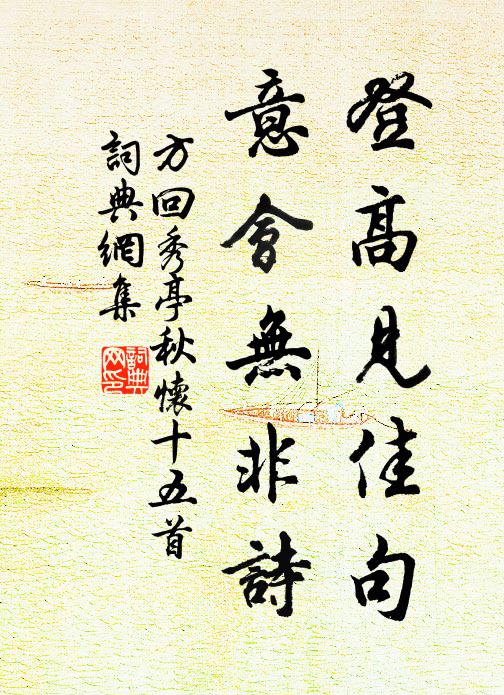 登高見佳句
意會無非詩
方回秀亭秋懷十五首
詞典網集
詞典网印